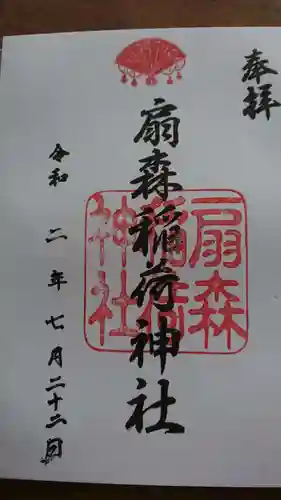 奉拝
扇森稲荷神社
扇森稲荷神社
令和二年七月二十二日